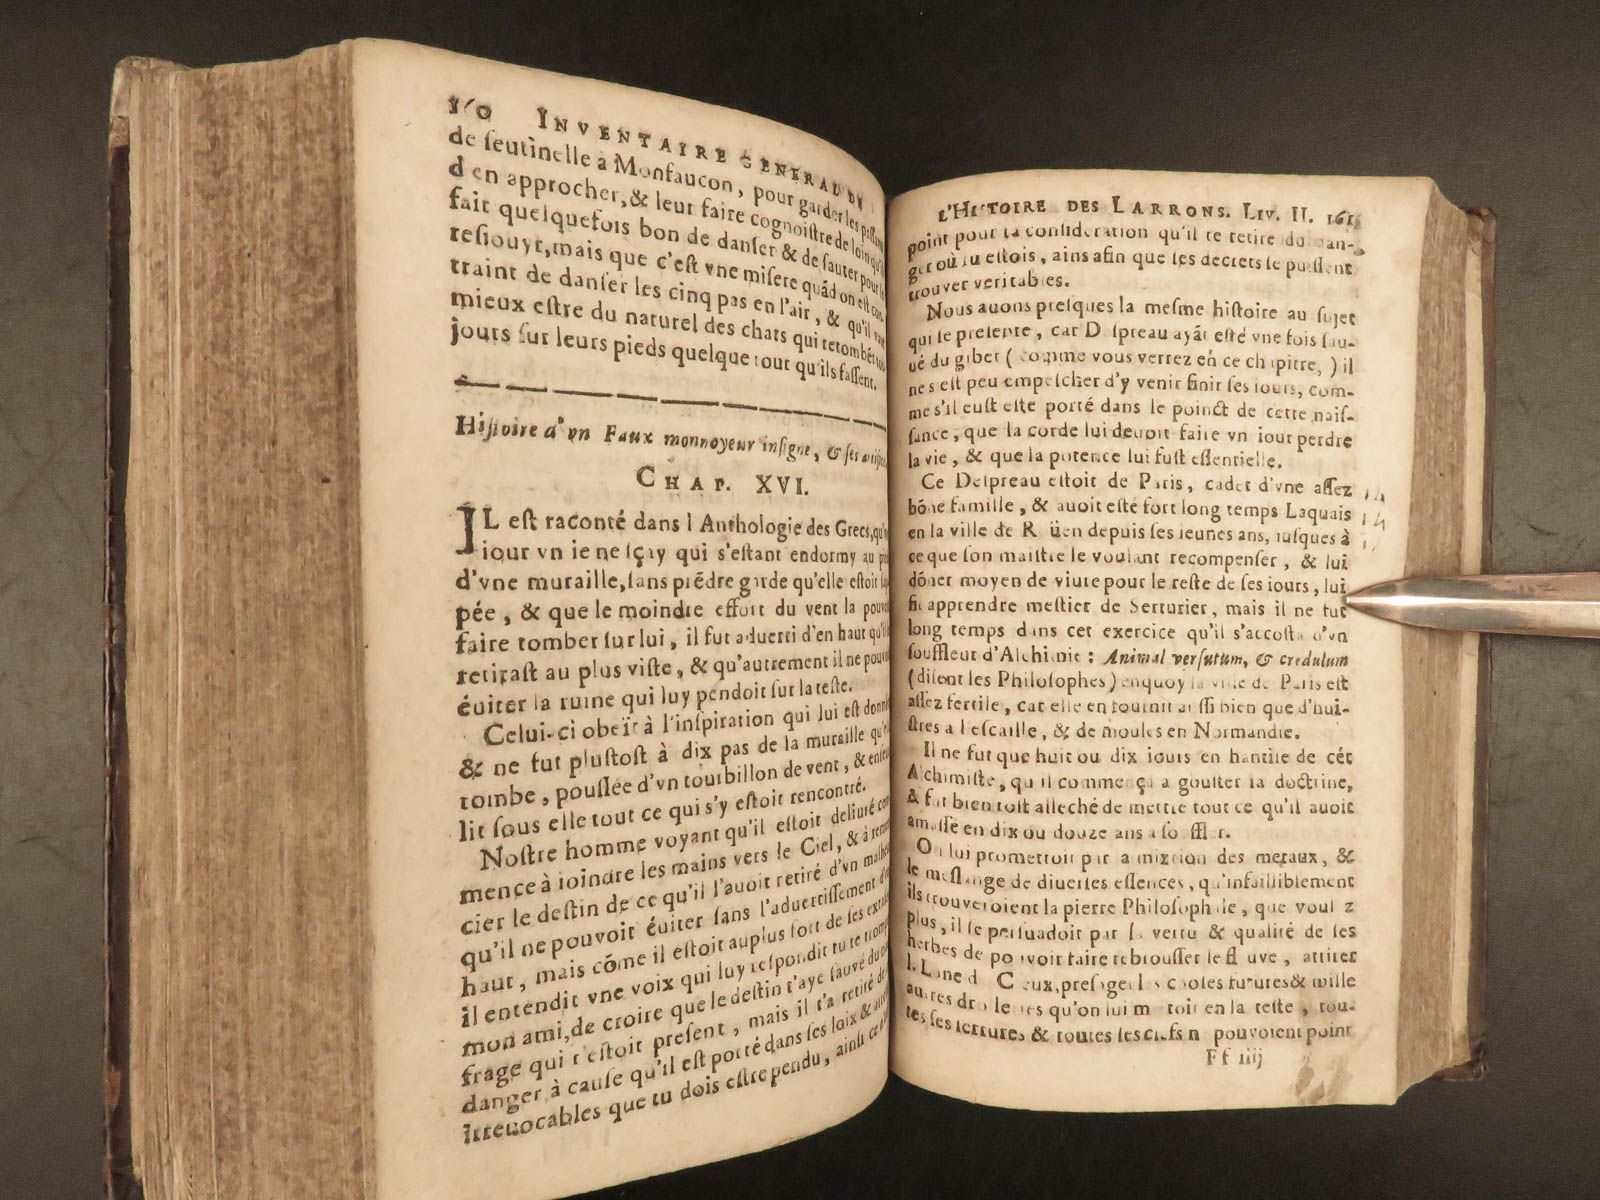 160 INVENTAIRE GENERAL DE
de ſeutinelle a Monfaucon, pour garder les paſſans
d en approcher, & leur faire cognoiſtre de loin qu'il
fait quelquefois bon de danſer & de ſauter pour ſe
reſiouyr, mais que c'eſt vne miſere quãd on eſt con-
traint de danſer les cinq pas en l'air, & qu'il vaut
mieux eſtre du naturel des chats qui retombẽt tou-
jours ſur leurs pieds quelque tour qu'ils faſſent.
Hiſtoire d'vn Faux monnoyeur inſigne, & ſes
CHAP. XVI.
IL eſt raconté dans l Anthologie des Grecs, qu'vn
iour vn ie ne ſçay qui s'eſtant endormy au
d'vne muraille, ſans prẽdre garde qu'elle eſtoit
pée, & que le moindre effort du vent la
faire tomber ſur lui, il fut aduerti d'en haut qu'il
retiraſt au plus viſte, & qu'autrement il ne
éuiter la ruine qui luy pendoit ſur la teſte.
Celui-ci obeït à l'inſpiration qui lui eſt
& ne fut pluſtoſt à dix pas de la muraille
tombe, pouſſée d'vn tourbillon de vent, &
lit ſous elle tout ce qui s'y eſtoit rencontré.
Noſtre homme voyant qu'il eſtoit deliuré com
mence à ioindre les mains vers le Ciel, & à
cier le deſtin de ce qu'il l'auoit retiré d'vn
qu'il ne pouvoit éuiter ſans l'aduertiſſement
haut, mais cõme il eſtoit au plus fort de ſes
il entendit vne voix qui luy reſpondit tu te
mon ami, de croire que le deſtin t'aye ſauvé du
frage qui t'eſtoit preſent, mais il t'a retiré
danger à cauſe qu'il eſt porté dans ſes loix &
irreuocables que tu dois eſtre pendu, ainſi ce
L'HISTOIRE DES LARRONS. LIV. II. 161
point pour ta conſideration qu'il te retire du dan-
ger où tu eſtois, ains afin que ſes decrets ſe puiſſent
trouver veritables.
Nous auons preſques la meſme hiſtoire au ſujet
qui ſe preſente, car D ſpreau ayãt eſté vne fois ſau-
ué du gibet (comme vous verrez en ce chapitre,) il
ne s eſt peu empeſcher d'y venir finir ſes iours, com-
me s'il euſt eſte porté dans le poinct de cette naiſ-
ſance, que la corde lui deuoit faire vn iour perdre
la vie, & que la potence lui fuſt eſſentielle.
Ce Deſpreau eſtoit de Paris, cadet d'vne aſſez
bõne famille, & auoit eſté fort long temps Laquais
en la ville de R üen depuis ſes ieunes ans, iuſques à
ce que ſon maiſtre le voulant recompenſer, & lui
dõner moyen de viure pour le reſte de ſes iours, lui
fit apprendre meſtier de Serrurier, mais il ne fut
long temps dans cet exercice qu'il s'accoſta d'vn
ſouffleur d'Alchimie : Animal verſutum, & credulum
(diſent les Philoſophes) enquoy la ville de Paris eſt
aſſez fertile, car elle en fournit auſſi bien que d'hui-
ſtres a l'eſcaille, & de moules en Normandie.
Il ne fut que huit ou dix iours en hantiſe de cét
Alchimiſte, qu il commença a gouſter ſa doctrine,
& fut bien toſt alleché de mettre tout ce qu'il auoit
amaſſé en dix ou douze ans a ſo ffler.
On lui promettoit par a mixtion des metaux, &
le meſlange de diuerſes eſſences, qu'infailliblement
ils trouveroient la pierre Philoſophale, que voul z
plus, il ſe perſuadoit par la vertu & qualité de ſes
herbes de pouvoir faire rebrouſſer le fl uve, attirer
la Lune d Cieux, preſager les choſes futures & mille
autres droleries qu'on lui m toit en la teſte, tou-
tes ſes ferrures & toutes ſes clefs n pouvoient point
Ff iiij